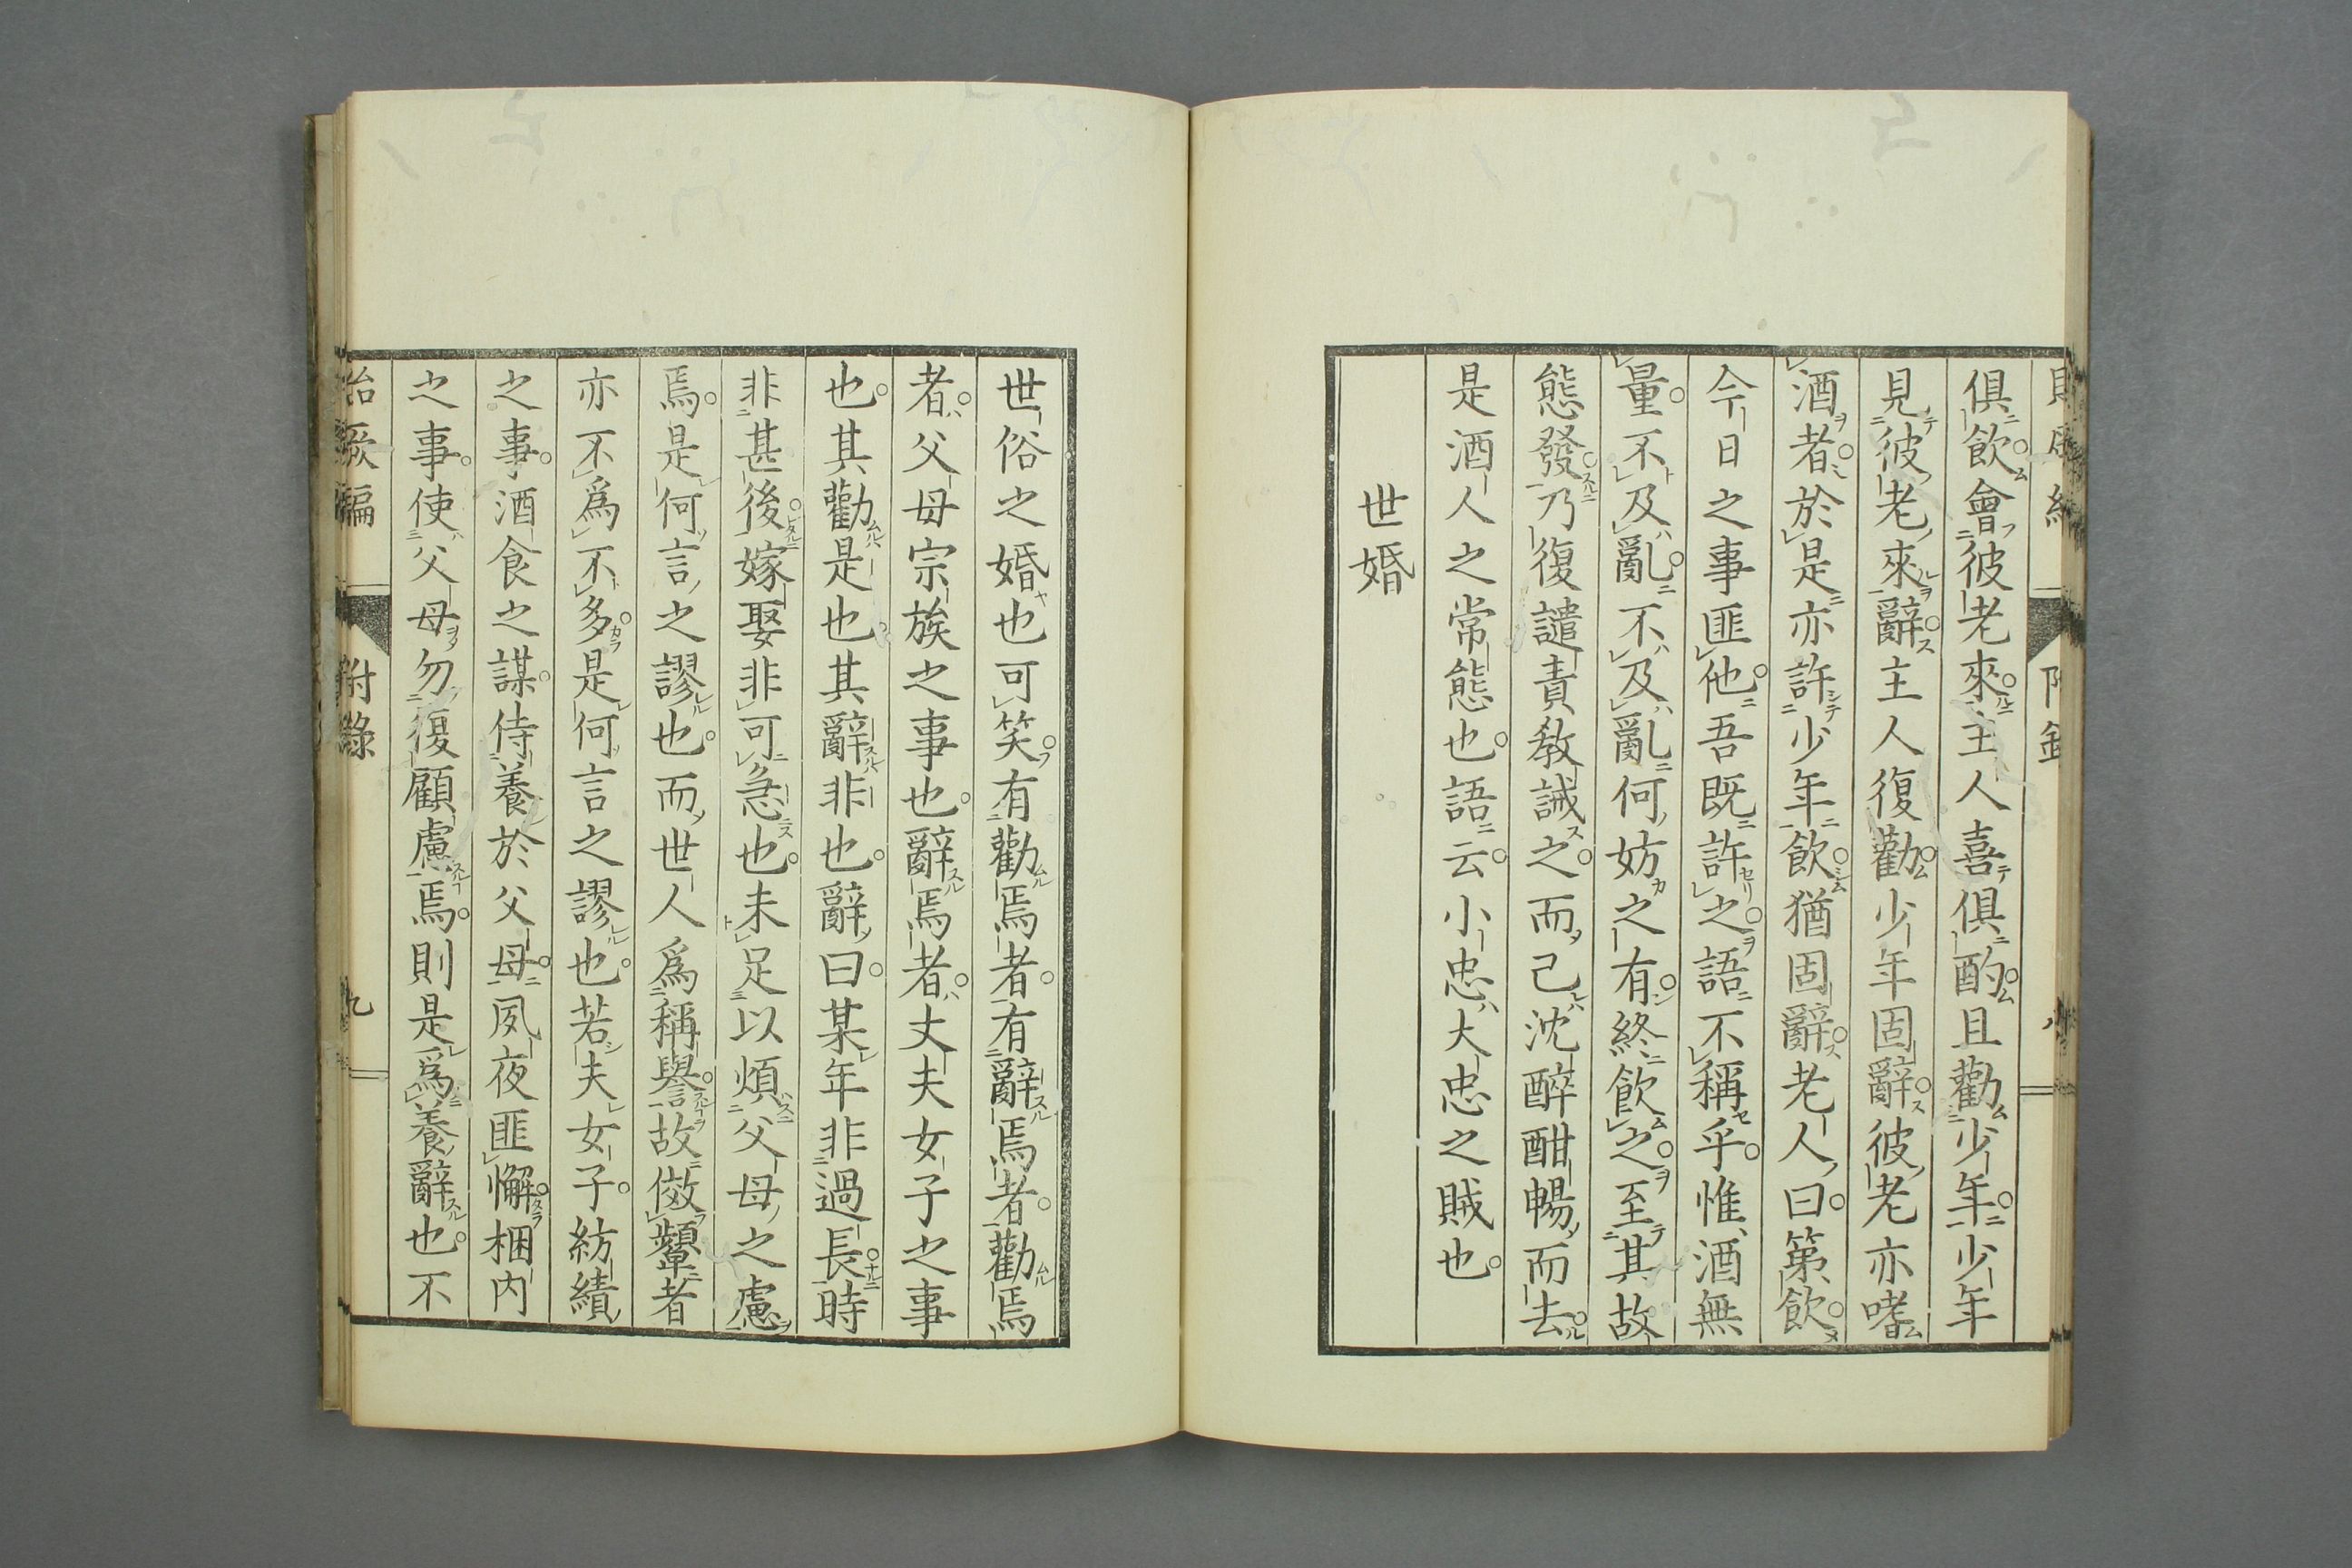 俱飲會彼老來主人喜俱酌且勸少年少年
見彼老來辭主人復勸少年固辭彼老亦嗜
酒者於是亦許少年飲猶固辭老人曰第飲
今日之事匪他吾既許之語不稱乎惟酒無
量不及亂不及亂何妨之有終飲之至其故
態發乃復譴責教誡之而己沈醉酣暢而去
是酒人之常態也語云小忠大忠之賊也
世婚
世俗之婚也可笑有勸焉者有辭焉者勸焉
者父母宗族之事也辭焉者丈夫女子之事
也其勸是也其辭非也辭曰某年非過長時
非甚後嫁娶非可急也未足以煩父母之慮
焉是何言之謬也而世人爲稱譽故傚顰者
亦不爲不多是何言之謬也若夫女子紡績
之事酒食之謀侍養於父母夙夜匪懈梱内
之事使父母勿復顧慮焉則是爲養辭也不
治厥編 附錄 九